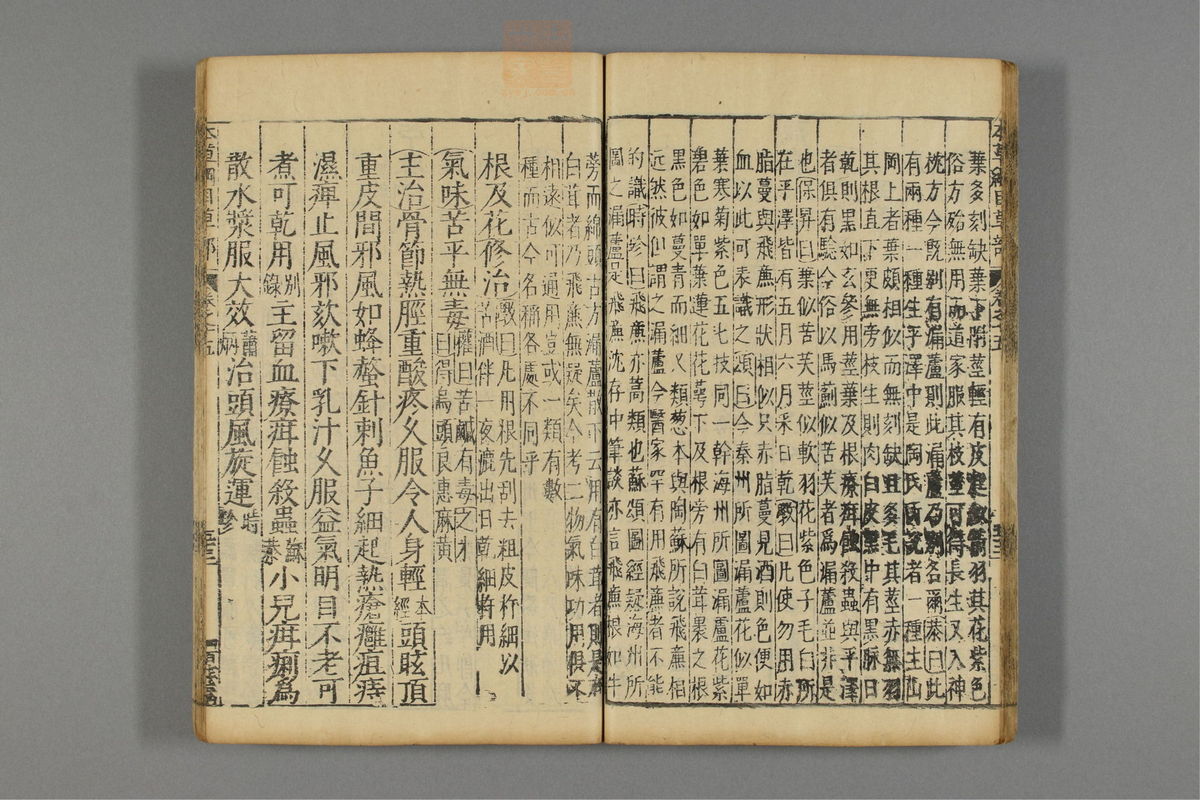 本草綱目草部 卷之十五 五十三
葉多刻缺葉下附莖輕有皮起似箭羽其花紫色
俗方殆無用而道家服其枝莖可得長生又入神
枕方今旣別有漏蘆則此漏蘆乃別名爾恭曰此
有兩種一種生平澤中是陶氏所說者一種生山
岡上者葉頗相似而無刻缺且多毛其莖赤無羽
其根直下更無旁枝生則肉白皮黑中有黑脉日
乾則黑如玄參用莖葉及根療疳蝕殺蟲與平澤
者俱有驗今俗以馬薊似苦芺者爲漏蘆並非是
也保昇曰葉似苦芺莖似軟羽花紫色子毛白所
在平澤皆有五月六月采日乾斅曰凡使勿用赤
脂蔓與飛廉形狀相似只赤脂蔓見酒則色便如
血以此可表識之頌曰今秦州所圖漏蘆花似單
葉寒菊紫色五七枝同一幹海州所圖漏蘆花紫
碧色如單葉蓮花花萼下及根旁有白茸裹之根
黑色如蔓青而細又類葱本與陶蘇所說飛廉相
近然彼但謂之漏蘆今醫家罕有用飛廉者不能
的識時珍曰飛廉亦蒿類也蘇頌圖經疑海州所
圖之漏蘆是飛廉沈存中筆談亦言飛廉根如牛
蒡而綿頭古方漏蘆散下云用有白茸者則是有
白茸者乃飛廉無疑矣今考二物氣味功用俱不
相遠似可通用豈或一類有數
種而古今名稱各處不同乎
根及花修治斅曰凡用根先刮去粗皮杵細以
苦酒伴一夜漉出日乾細杵用
氣味苦平無毒權曰苦鹹有毒之才
曰得烏頭良惡麻黃
主治骨節熱脛重酸疼久服令人身輕本經頭眩頂
重皮間邪風如蜂螫針刺魚子細起熱瘡癰疽痔
濕痺止風邪欬嗽下乳汁久服益氣明目不老可
煮可乾用別錄主留血療疳蝕殺蟲蘇恭小兒疳痢爲
散水漿服大效蕭炳治頭風旋運時珍
本草綱目草部 卷之十五 五十三